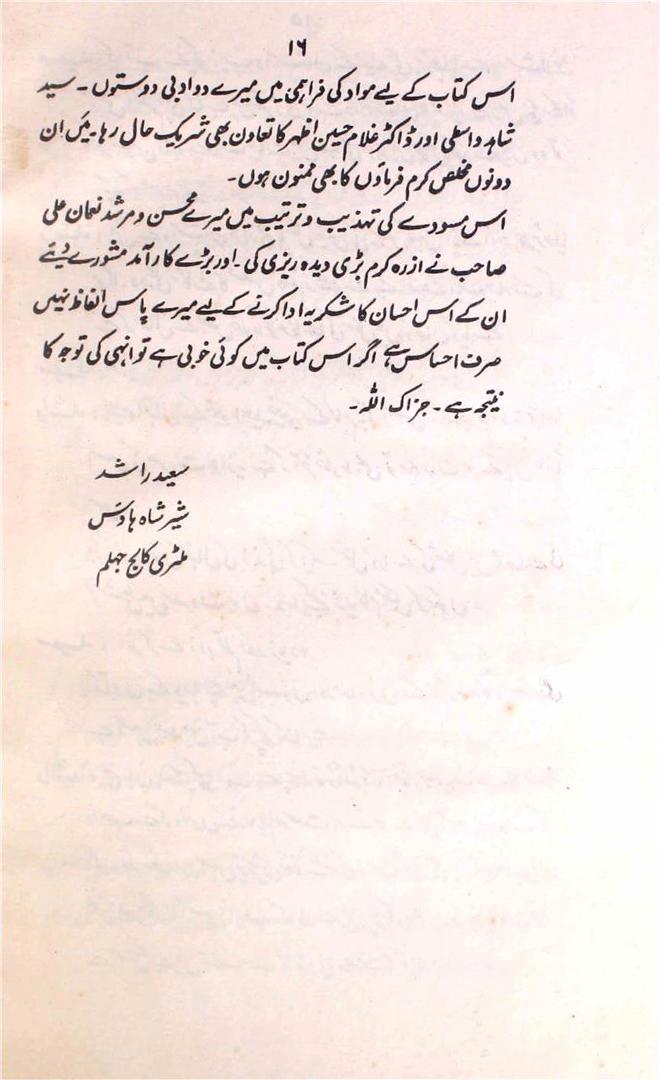 ۱۶
اس کتاب کے لیے مواد کی فراہمی میں میرے دو ادبی دوستوں ۔ سید
شاہد واسطی اور ڈاکٹر غلام حسین اظہر کا تعاون بھی شریک حال رہا۔ میں ان
دونوں مخلص کرم فرماؤں کا بھی ممنون ہوں۔
اس مسودے کی تہذیب و ترتیب میں میرے محسن و مرشد نعمان علی
صاحب نے ازرہ کرم بڑی دیدہ ریزی کی۔ اور بڑے کار آمد مشورے دیئے
ان کے اس احسان کا شکریہ ادا کرنے کے لیے میرے پاس الفاظ نہیں
صرف احساس ہے اگر اس کتاب میں کوئی خوبی ہے تو انہی کی توجہ کا
نتیجہ ہے ۔ جزاک اللہ ۔
سعید راشد
شیر شاہ ہاؤس
ملٹری کالج جہلم